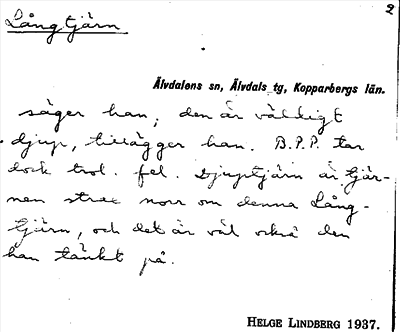 2
Långtjärn
Älvdalens sn, Älvdals tg, Kopparbergs län.
säger han, den är väldigt
djup, tillägger han. B.P.P. tar
dock trol. fel. Djuptjärn är tjär-
nen strax norr om denna Lång-
tjärn, och det är väl också den
han tänkt på.
HELGE LINDBERG 1937.